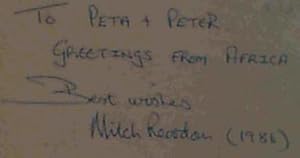 To PETA + PETER
GREETINGS FROM AFRICA
Best wishes
Mitch (1986)